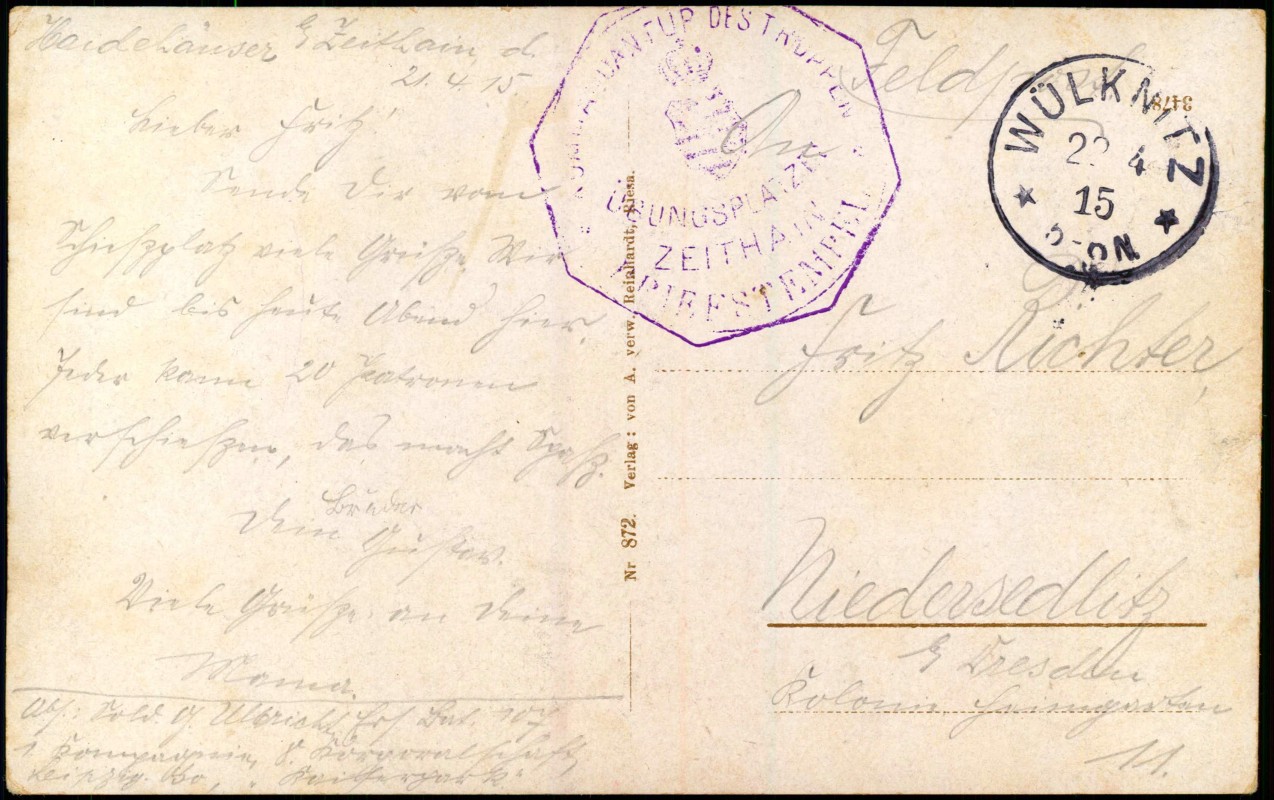 Haidehäuser b/ Zeithain, d.
21.4.15
Lieber Fritz!
Sende Dir vom
Schießplatz viele Grüße. Wir
sind bis heute Abend hier,
Jeder kann 20 Patronen
verschießen, das macht Spaß.
Dein Bruder
Gustav.
Viele Grüße an Deine
Mama.
Abs: Sold. G. Ulbricht, Ers. Bat. 107
1. Kompagnie, 8. Korporalschaft,
Leipzig. "Kaiserpark"
Nr 872. Verlag: von A. verw. Reinhardt, Riesa.
KOMMANDANTUR DES TRUPPEN
ÜBUNGSPLATZES
ZEITHAIN
BRIEFSTEMPEL
Feldpost
3478
WÜLKNITZ
22 4
15
5-6N
An
Fritz Richter,
Niedersedlitz
b/ Dresden
Kolonie Heimgarten
11.